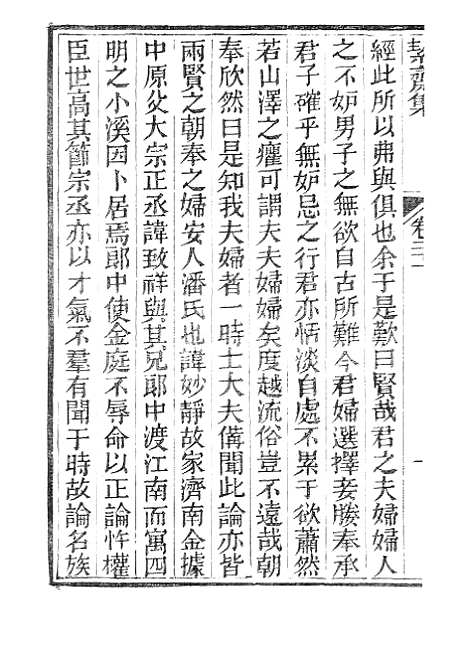 絜齋集
卷二十一
經此所以弗與俱也余于是歎曰賢哉君之夫婦婦人
之不妒男子之無欲自古所難今君婦選擇妾媵奉承
君子確乎無妒忌之行君亦恬淡自處不累于欲蕭然
若山澤之癯可謂夫夫婦婦矣度越流俗豈不遠哉朝
奉欣然曰是知我夫婦者一時士大夫偹聞此論亦皆
兩賢之朝奉之婦安人潘氏也諱妙靜故家濟南金據
中原父大宗正丞諱致祥與其兄郎中渡江南而寓四
明之小溪因卜居焉郎中使金庭不辱命以正論忤權
臣世高其節宗丞亦以才氣不羣有聞于時故論名族